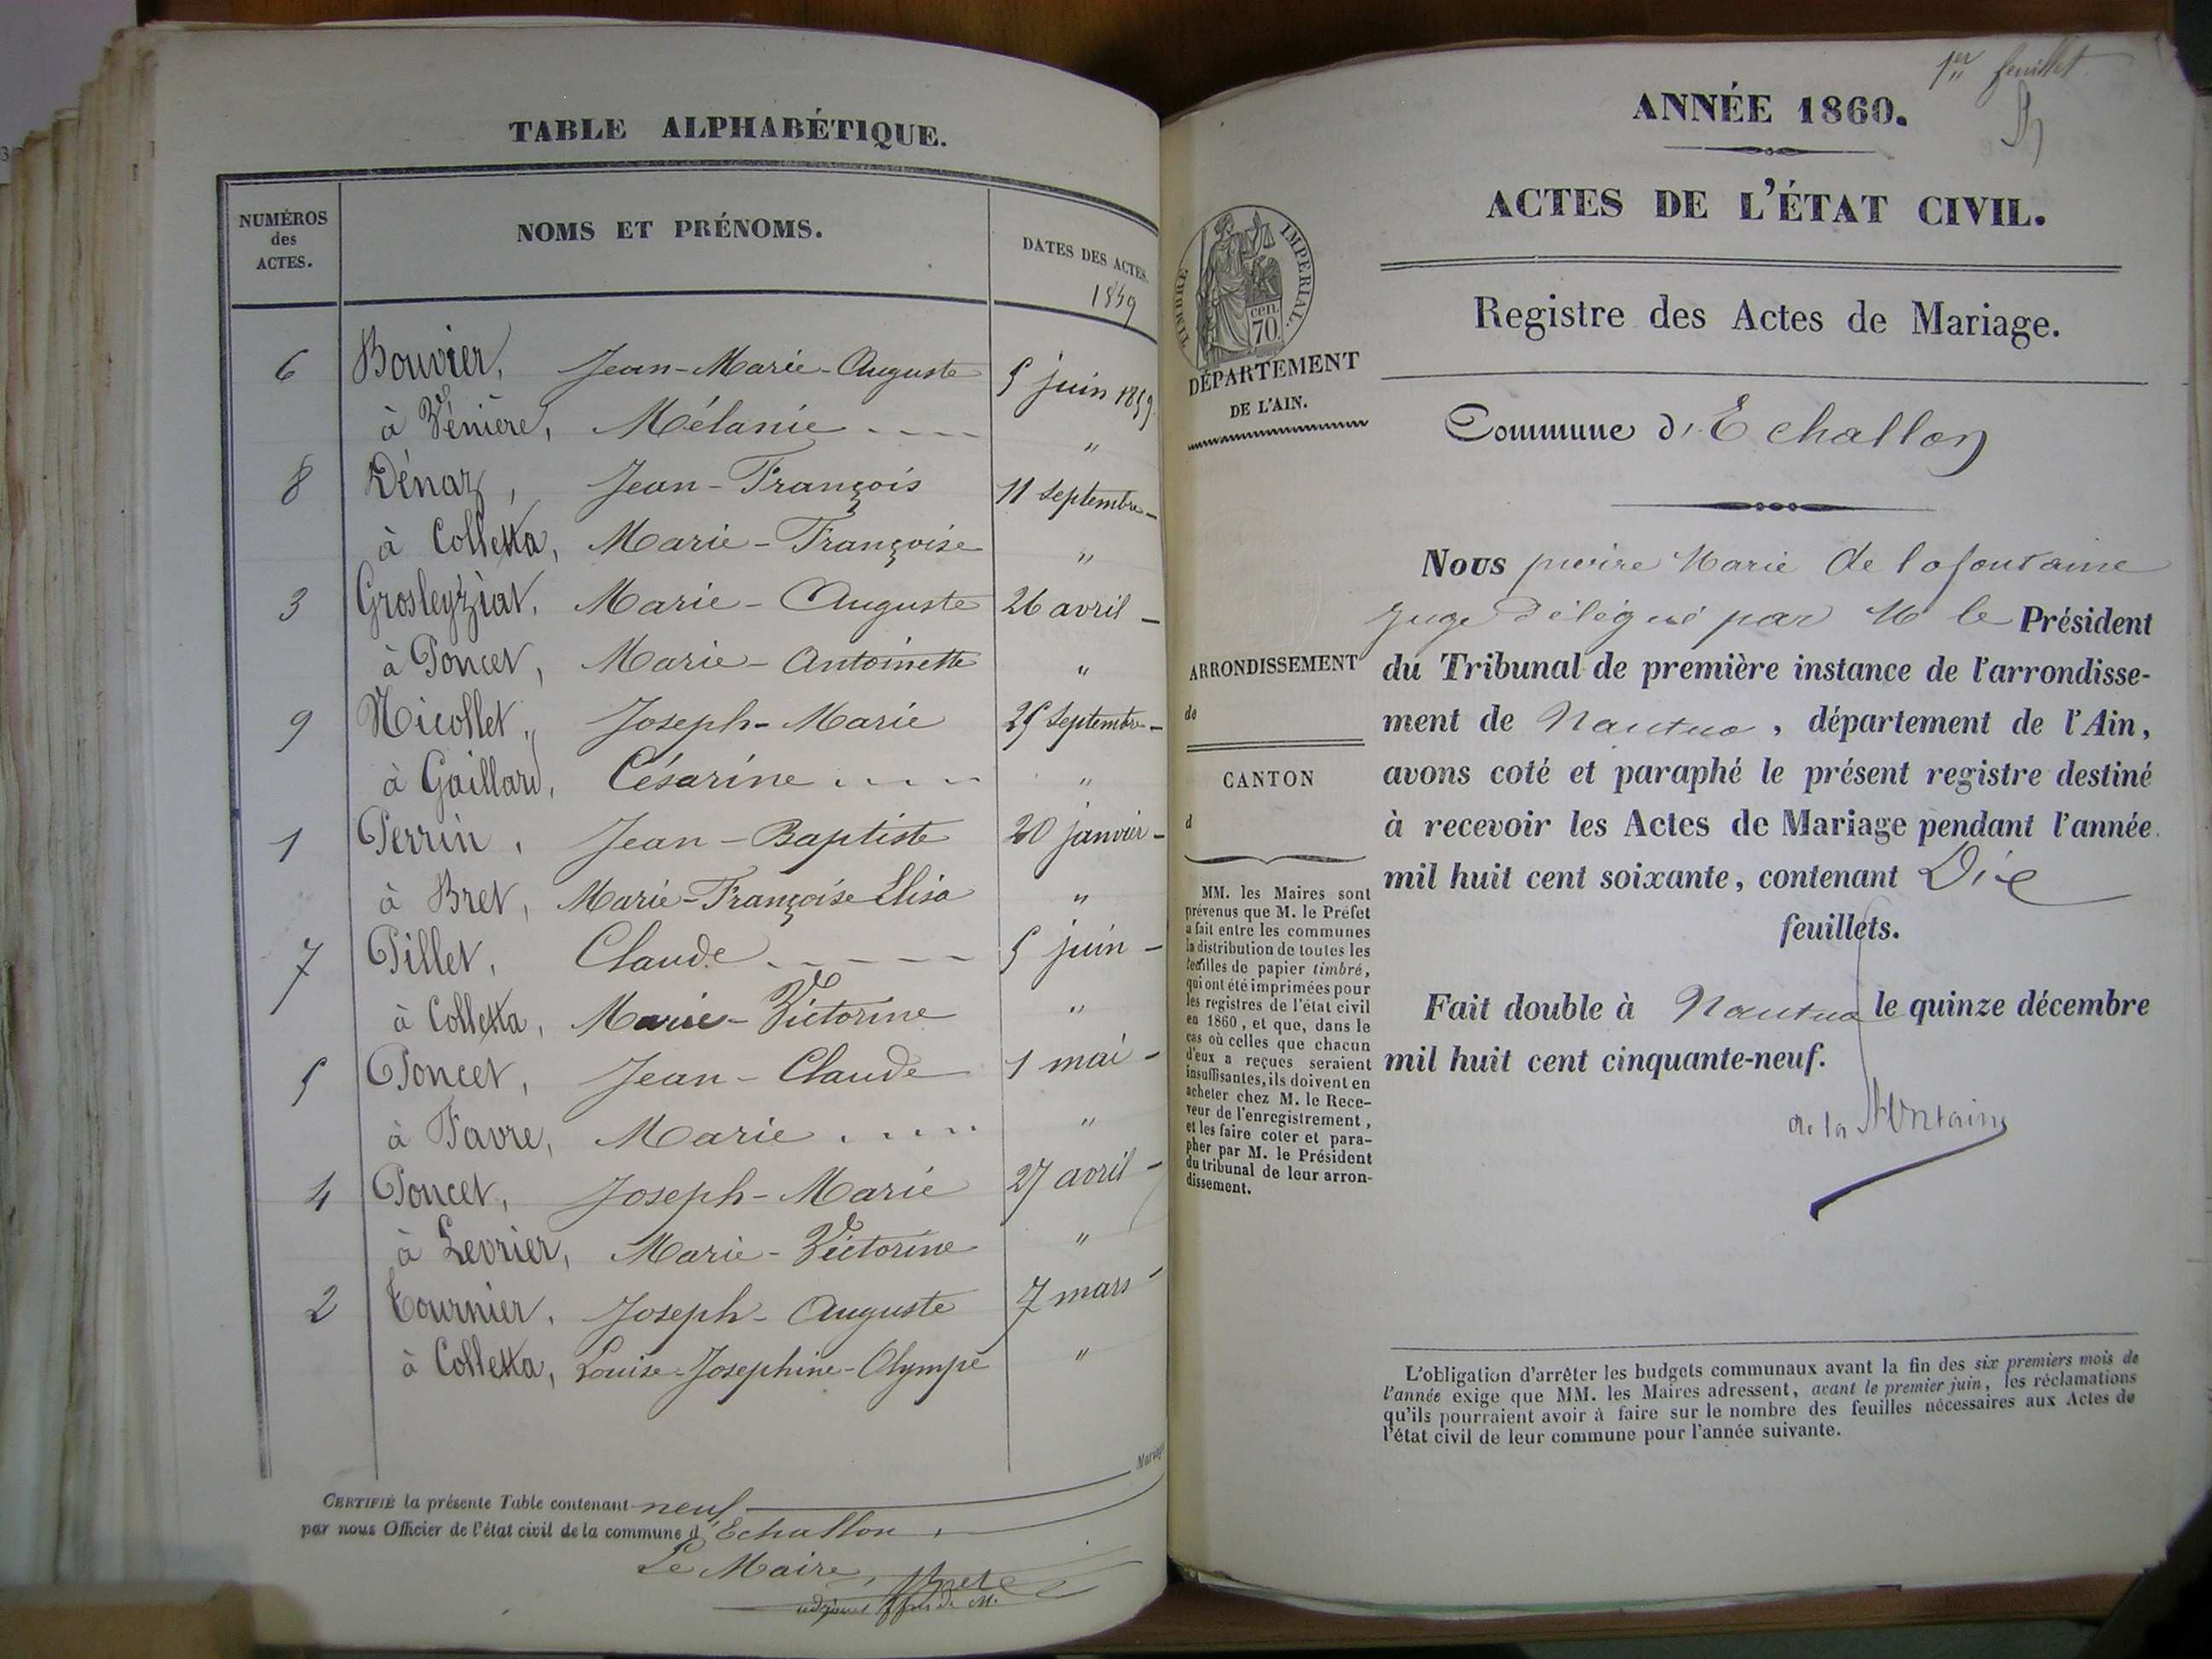 TABLE ALPHABÉTIQUE.
NUMÉROS
des
ACTES.
NOMS ET PRÉNOMS.
DATES DES ACTES.
1859
6 Bouvier, Jean-Marie-Auguste 5 juin 1859
à Vénière, Mélanie "
8 Dénaz, Jean-François 11 septembre
à Colletta, Marie-Françoise "
3 Grosleyziat, Marie-Auguste 26 avril
à Poncet, Marie-Antoinette "
9 Nicollet, Joseph-Marie 25 septembre
à Gaillard, Césarine "
1 Perrin, Jean-Baptiste 20 janvier
à Bret, Marie-Françoise Elisa "
7 Pillet, Claude 5 juin
à Colletta, Marie-Victorine "
5 Poncet, Jean-Claude 1 mai
à Favre, Marie "
4 Poncet, Joseph-Marie 27 avril
à Levrier, Marie-Victorine "
2 Tournier, Joseph-Auguste 7 mars
à Colletta, Louise-Josephine-Olympe "
CERTIFIÉ la présente Table contenant neuf
par nous Officier de l'état civil de la commune d'Echallon,
Le Maire,
1er feuillet
ANNÉE 1860.
ACTES DE L'ÉTAT CIVIL.
TIMBRE IMPERIAL.
cen.
70
DÉPARTEMENT
DE L'AIN.
Registre des Actes de Mariage.
Commune d'Echallon
Nous Marie de lafontaine
juge délégué par M le Président
du Tribunal de première instance de l'arrondisse-
ment de Nantua, département de l'Ain,
avons coté et paraphé le présent registre destiné
à recevoir les Actes de Mariage pendant l'année
mil huit cent soixante, contenant Dix
feuillets.
Fait double à Nantua le quinze décembre
mil huit cent cinquante-neuf.
de la fontaine
ARRONDISSEMENT
de
CANTON
d
MM. les Maires sont
prévenus que M. le Préfet
a fait entre les communes
la distribution de toutes les
feuilles de papier timbré,
qui ont été imprimées pour
les registres de l'état civil
en 1860, et que, dans le
cas où celles que chacun
d'eux a reçues seraient
insuffisantes, ils doivent en
acheter chez M. le Rece-
veur de l'enregistrement,
et les faire coter et para-
pher par M. le Président
du tribunal de leur arron-
dissement.
L'obligation d'arrêter les budgets communaux avant la fin des six premiers mois de
l'année exige que MM. les Maires adressent, avant le premier juin, les réclamations
qu'ils pourraient avoir à faire sur le nombre des feuilles nécessaires aux Actes de
l'état civil de leur commune pour l'année suivante.